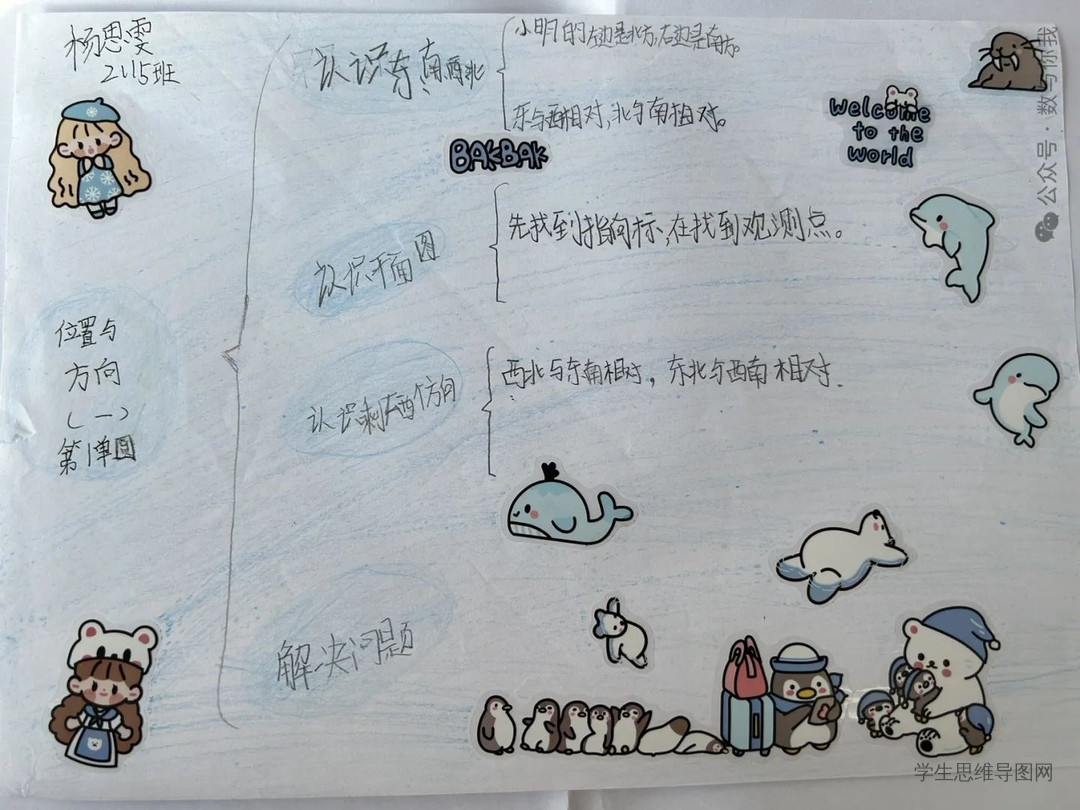 杨思雯
2415班
认识东、南西北
小明的左边是北方,右边是南方。
东与西相对,北与南相对。
BAKBAK
Welcome
to the
world
公众号·数与你我
认识平面图
先找到指向标,在找到观测点。
位置与
方向
(一)
第1单圆
认识剩下西个方向
西北与东南相对,东北与西南相对.
解决问题
学生思维导图网